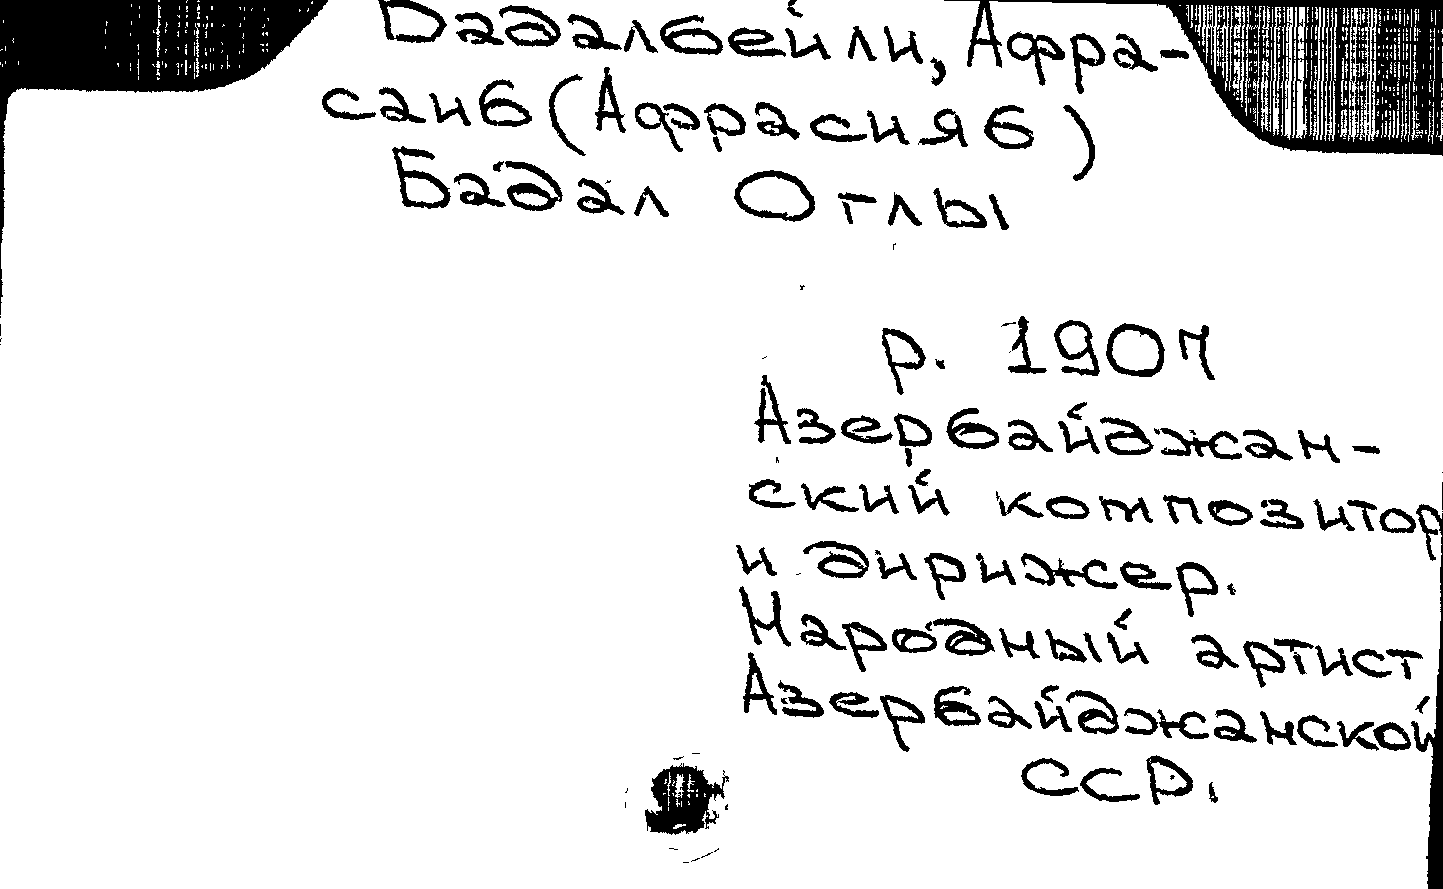 Бадалбейли, Афра-
саиб (Афрасияб)
Бадал Оглы
р. 1907
Азербайджан-
ский композитор
и дирижер.
Народный артист
Азербайджанской
ССР.